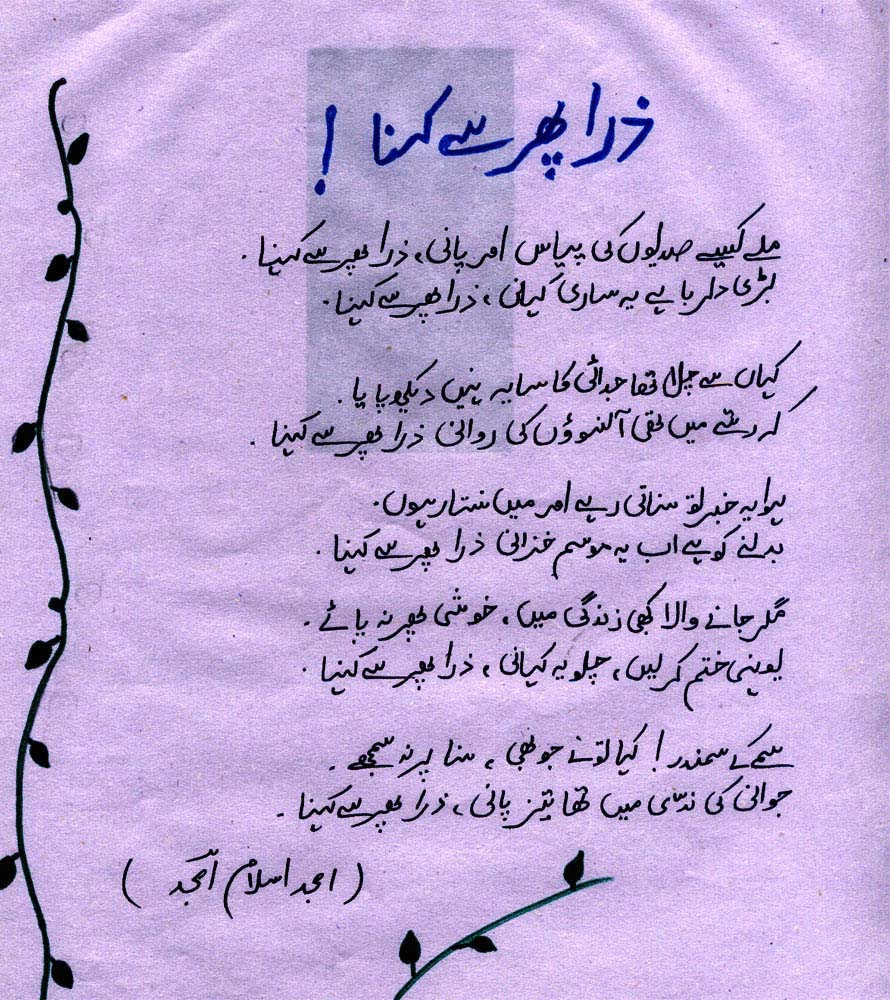 ذرا پھر سے کہنا !
ملے کیسے صدیوں کی پیاس اور پانی، ذرا پھر سے کہنا ۔
بڑی دلربا ہے یہ ساری کہانی، ذرا پھر سے کہنا ۔
کہاں سے چلا تھا جدائی کا سایہ نہیں دیکھ پایا ۔
کہ رستے میں تھی آنسوؤں کی روانی ذرا پھر سے کہنا ۔
ہوا یہ خبر تو سناتی رہے اور میں سنتا رہوں ۔
بدلنے کو ہے اب یہ موسم خزانی ذرا پھر سے کہنا ۔
مُکر جانے والا کبھی زندگی میں، خوشی پھر نہ پائے ۔
یونہی ختم کرلیں، چلو یہ کہانی، ذرا پھر سے کہنا ۔
سمے کے سمندر! کہا تو نے جو بھی، سنا پر نہ سمجھے ۔
جوانی کی ندّی میں تھا تیز پانی، ذرا پھر سے کہنا ۔
( امجد اسلام امجد )